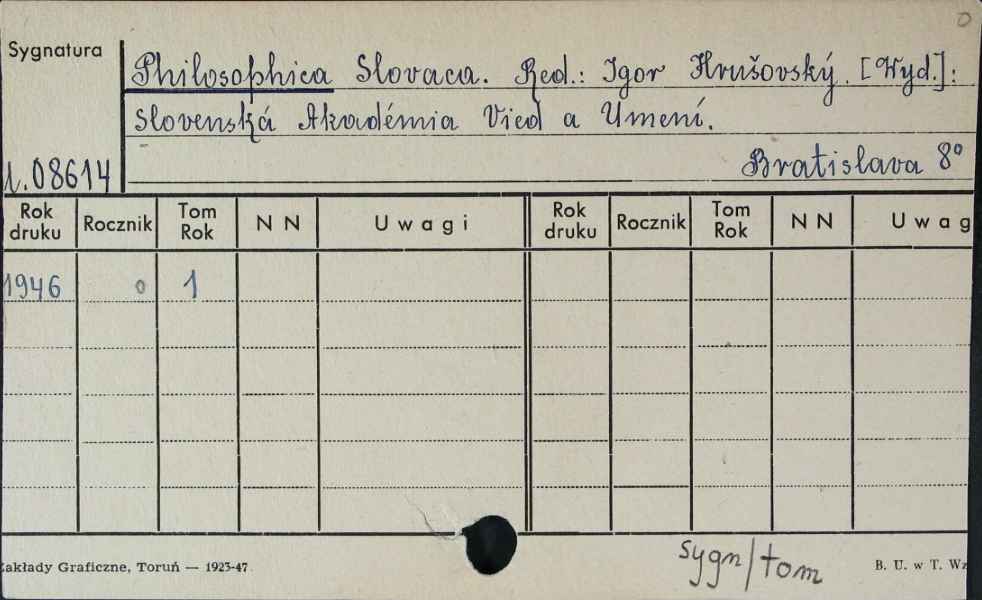 D
Sygnatura
Philosophica Slovaca. Red.: Igor Hrušovský. [Wyd.]:
Slovenská Akadémia Vied a Umení.
Bratislava 8°
1.08614
Rok druku Rocznik Tom Rok NN Uwagi Rok druku Rocznik Tom Rok NN Uwag
1946 0 1
sygn/tom
Zakłady Graficzne, Toruń — 1923-47 B. U. w T. Wz